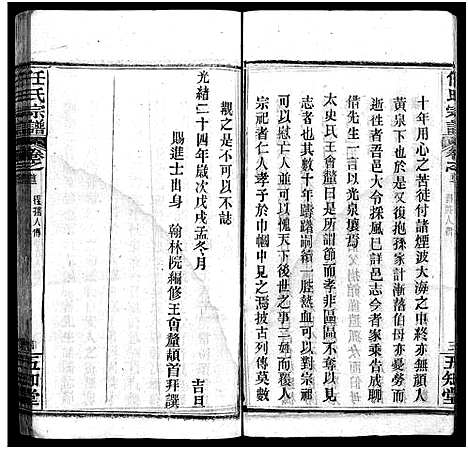 十年用心之苦徒付諸煙波大海之中終亦無顏人
黃泉下也於是又復抱孫家計漸落伯母亦憂勞而
逝性者吾邑大令採風已詳邑志今者家乘告成聊
借先生一言以光泉壤焉
太史氏王會釐曰是所謂節而孝非區區不奪以貞
志者也其數十年躊躇嗣續一腔熱血可以對宗祖
可以慰亡人並可以愧天下後世之事三姓而覆人
宗祀者仁人孝子於巾幗中見之焉披古列傳莫數
三 五知堂
任氏宗譜
卷之
程孺人傳
五知堂
觀之是不可以不誌
光緒二十四年歲次戊戌孟冬月 吉旦
賜進士出身 翰林院編修王會釐頓首拜譔